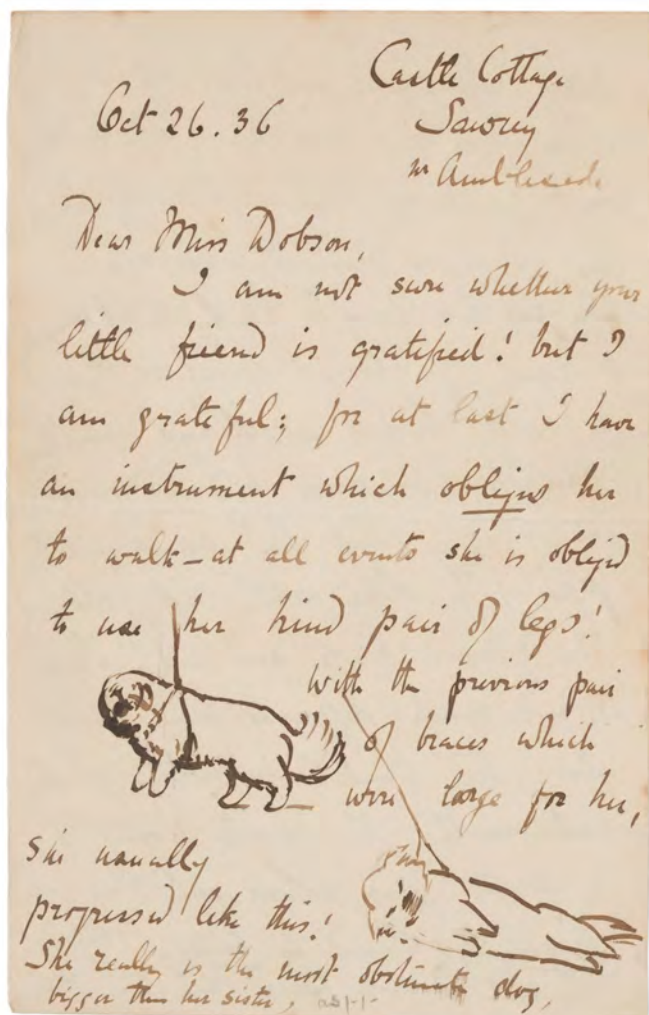 Castle Cottage
Oct 26.36
Sawrey
nr Ambleside
Dear Miss Dobson,
I am not sure whether your
little friend is gratified! but I
am grateful; for at last I have
an instrument which obliges her
to walk – at all events she is obliged
to use her hind pair of legs!
With the previous pair
of braces which
were large for her,
she usually
progressed like this!
She really is the most obstinate dog,
bigger than her sister,